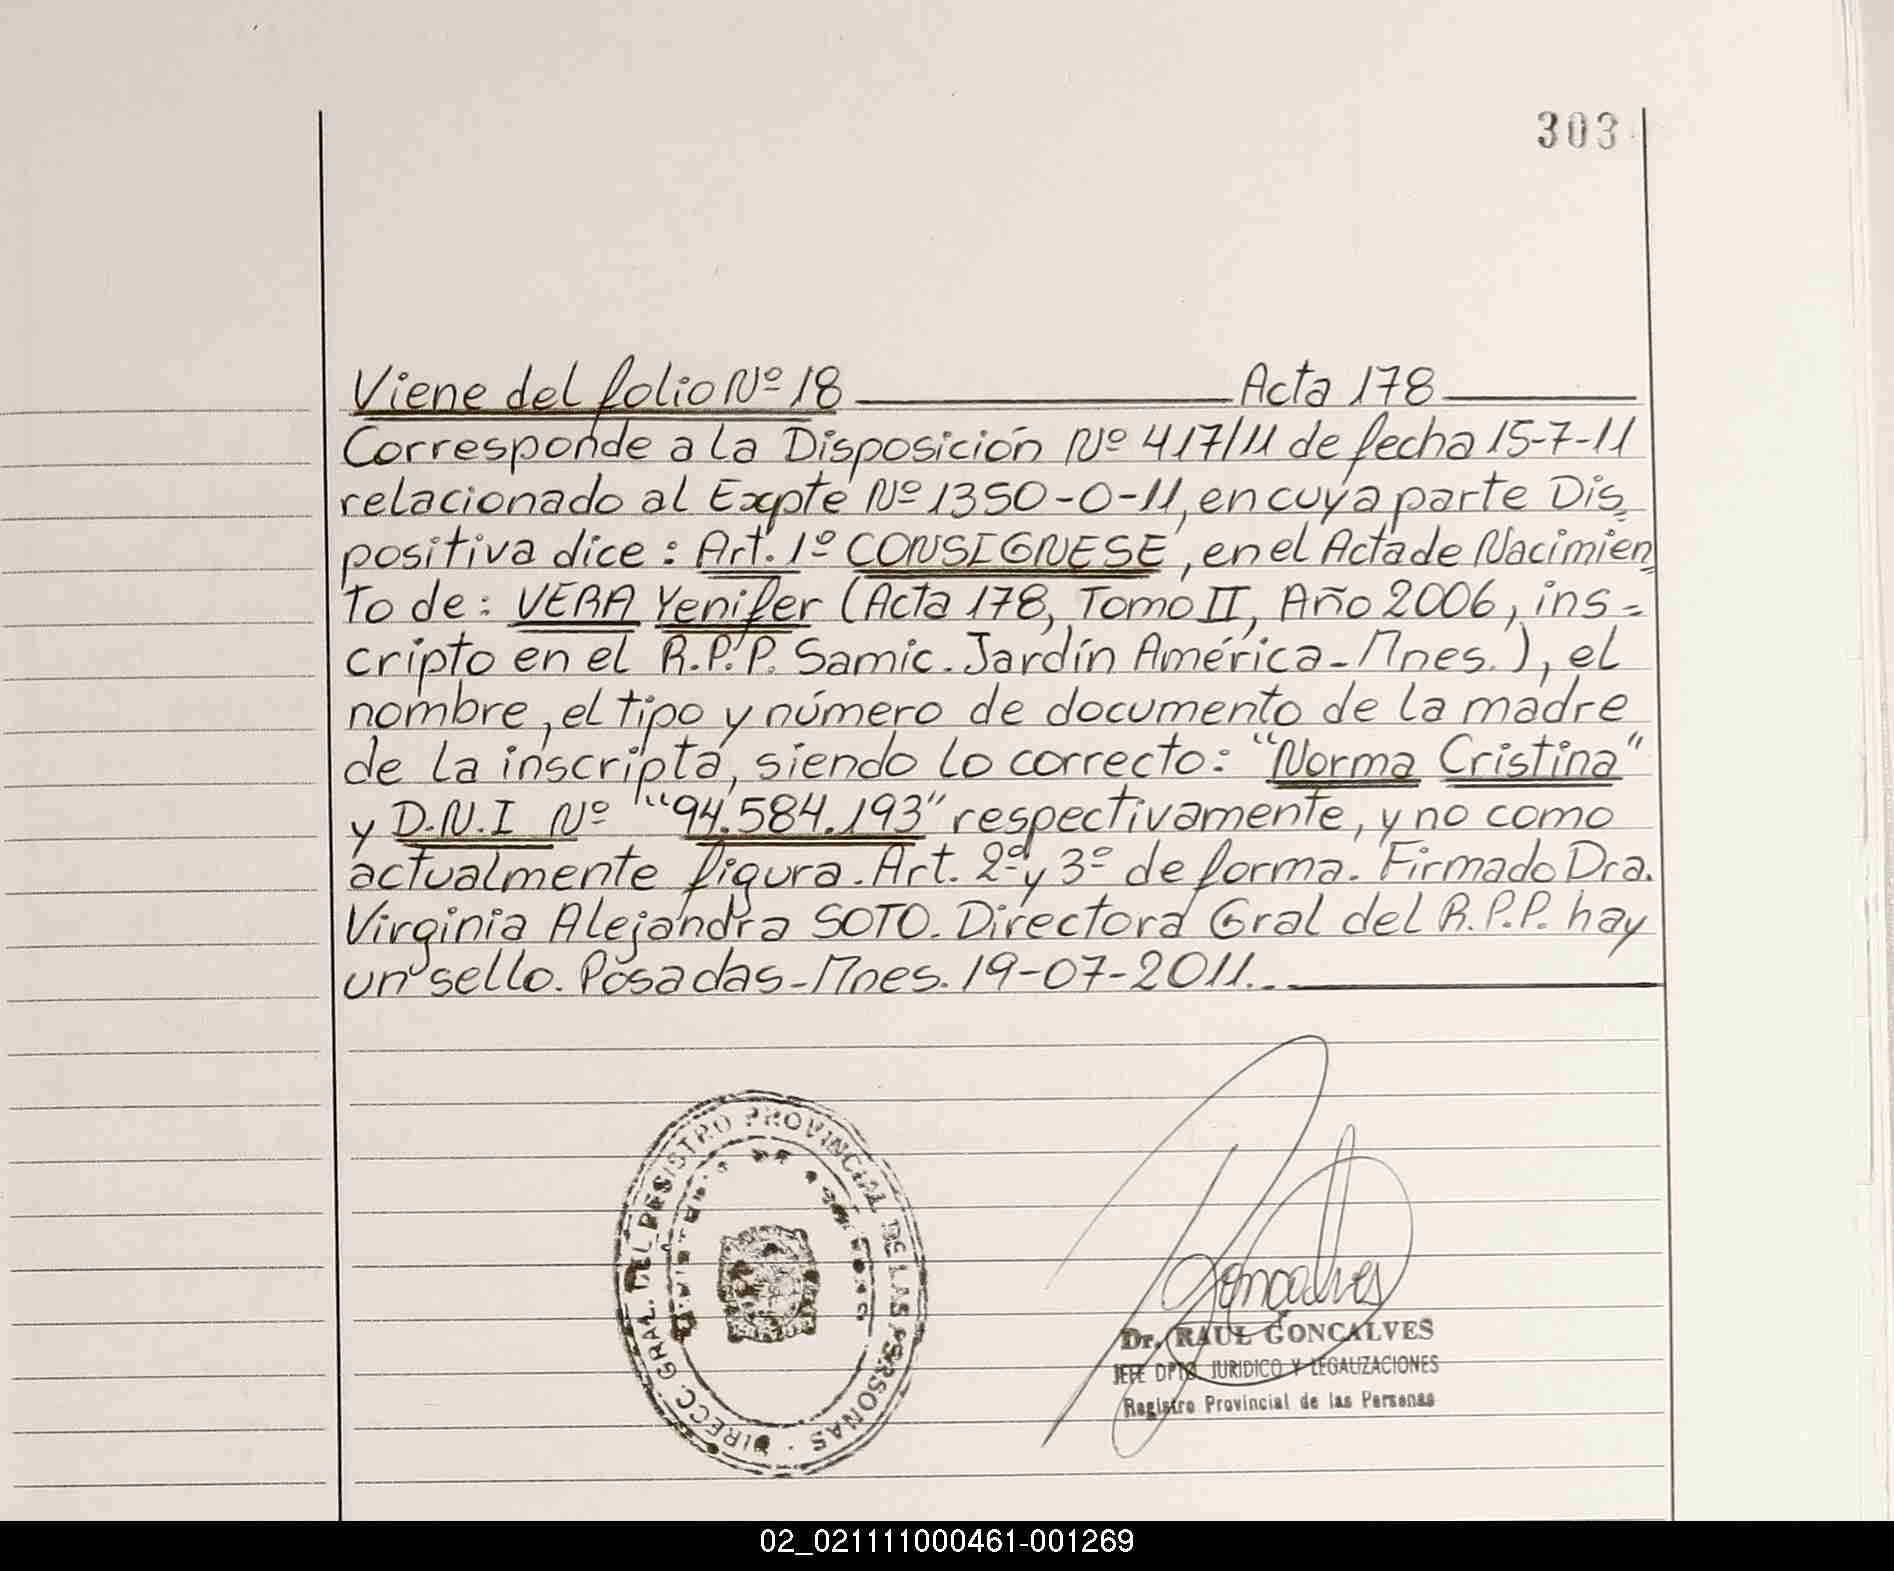 303
Viene del folio Nº 18 Acta 178
Corresponde a la Disposición Nº 417/11 de fecha 15-7-11
relacionado al Expte Nº 1350-0-11, en cuya parte Dis=
positiva dice: Art. 1º CONSIGNESE, en el Acta de Nacimien=
to de: VERA Yenifer (Acta 178, Tomo II, Año 2006, ins=
cripto en el R.P.P. Samic. Jardín América-Mnes.), el
nombre, el tipo y número de documento de la madre
de la inscripta, siendo lo correcto: "Norma Cristina"
y D.N.I Nº "94.584.193" respectivamente, y no como
actualmente figura. Art. 2º y 3º de forma. Firmado Dra.
Virginia Alejandra SOTO. Directora Gral del R.P.P. hay
un sello. Posadas-Mnes. 19-07-2011.
DIRECC. GRAL. DEL REGISTRO PROVINCIAL DE LAS PERSONAS
Goncalves
Dr. RAUL GONCALVES
JEFE DPTO JURIDICO Y LEGALIZACIONES
Registro Provincial de las Personas
02_021111000461-001269